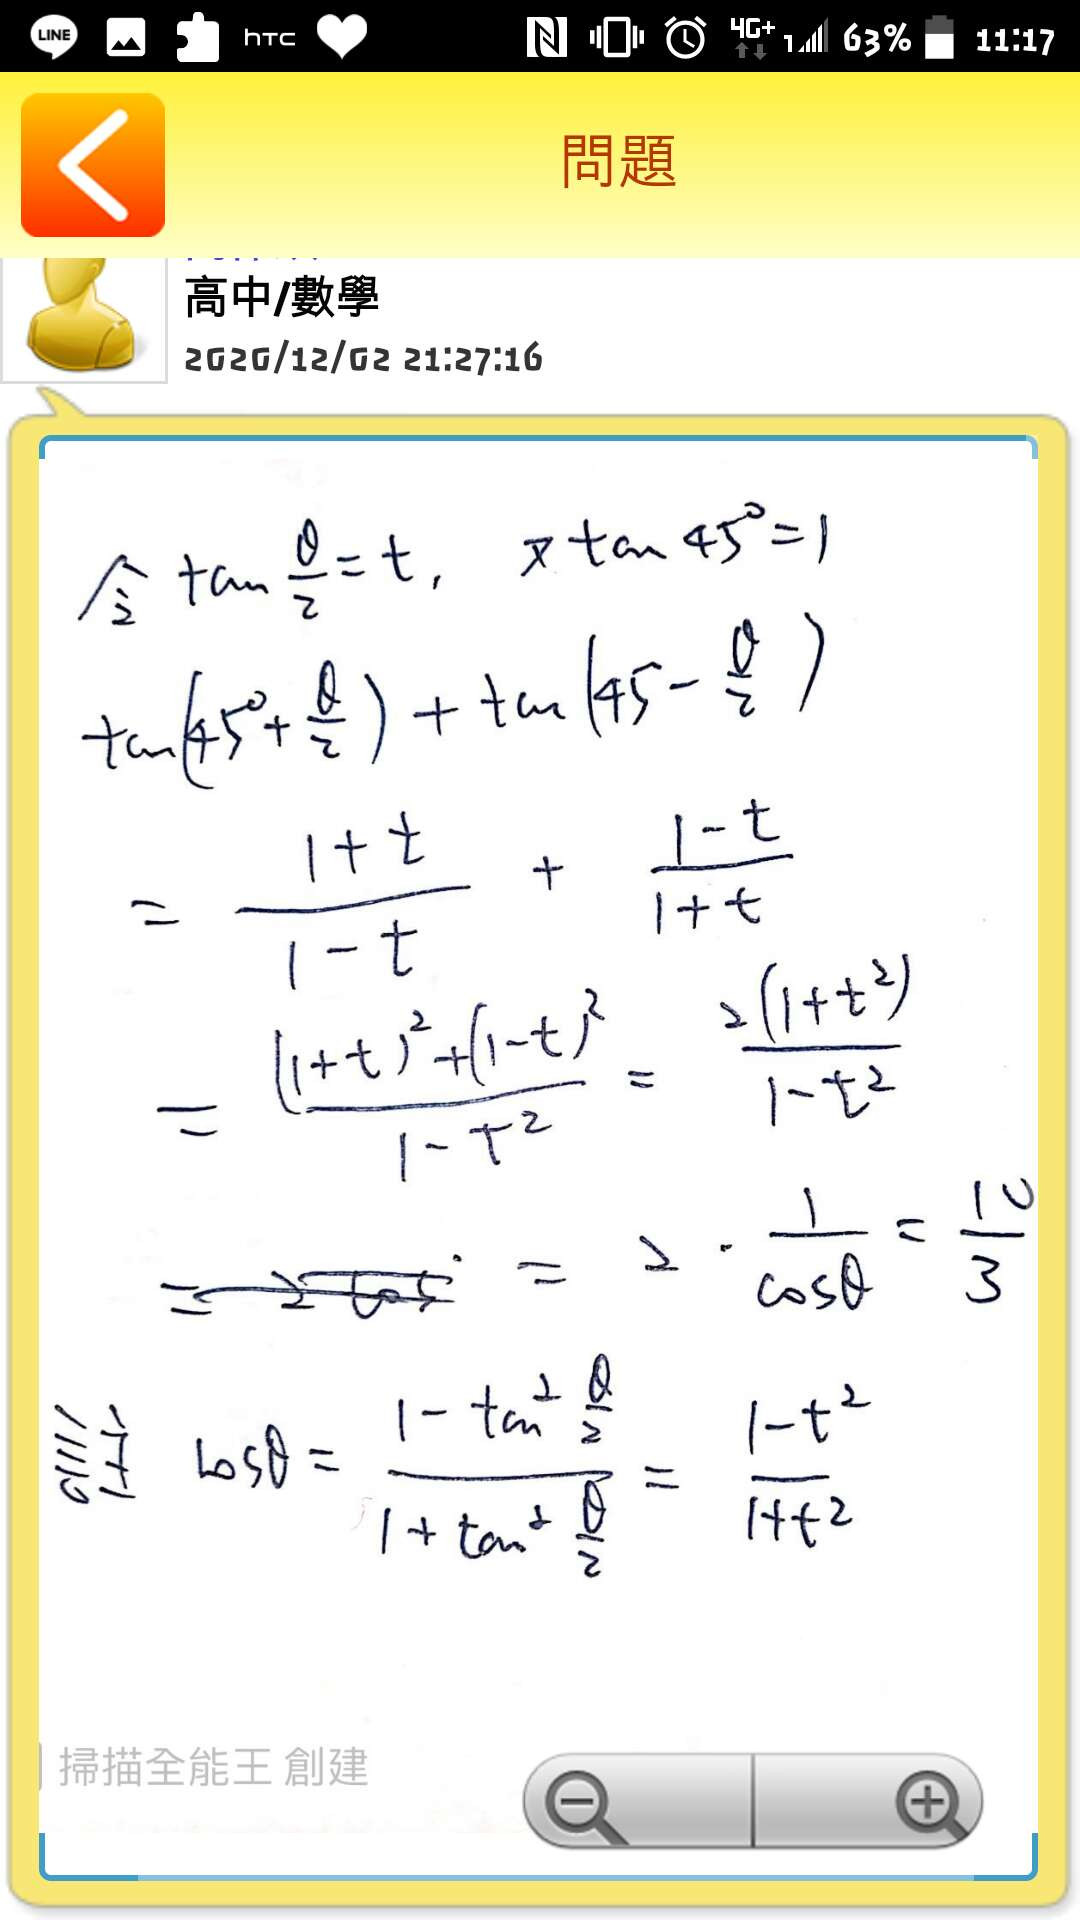 LINE hTC 4G+ 1 63% 11:17
問題
高中/數學
2020/12/02 21:27:16
令 tan θ/2 = t, 又 tan 45° = 1
tan(45° + θ/2) + tan(45 - θ/2)
= (1+t)/(1-t) + (1-t)/(1+t)
= ((1+t)² + (1-t)²)/(1-t²) = 2(1+t²)/(1-t²)
= 2 · 1/cosθ = 10/3
註 cosθ = (1 - tan² θ/2)/(1 + tan² θ/2) = (1-t²)/(1+t²)
掃描全能王 創建